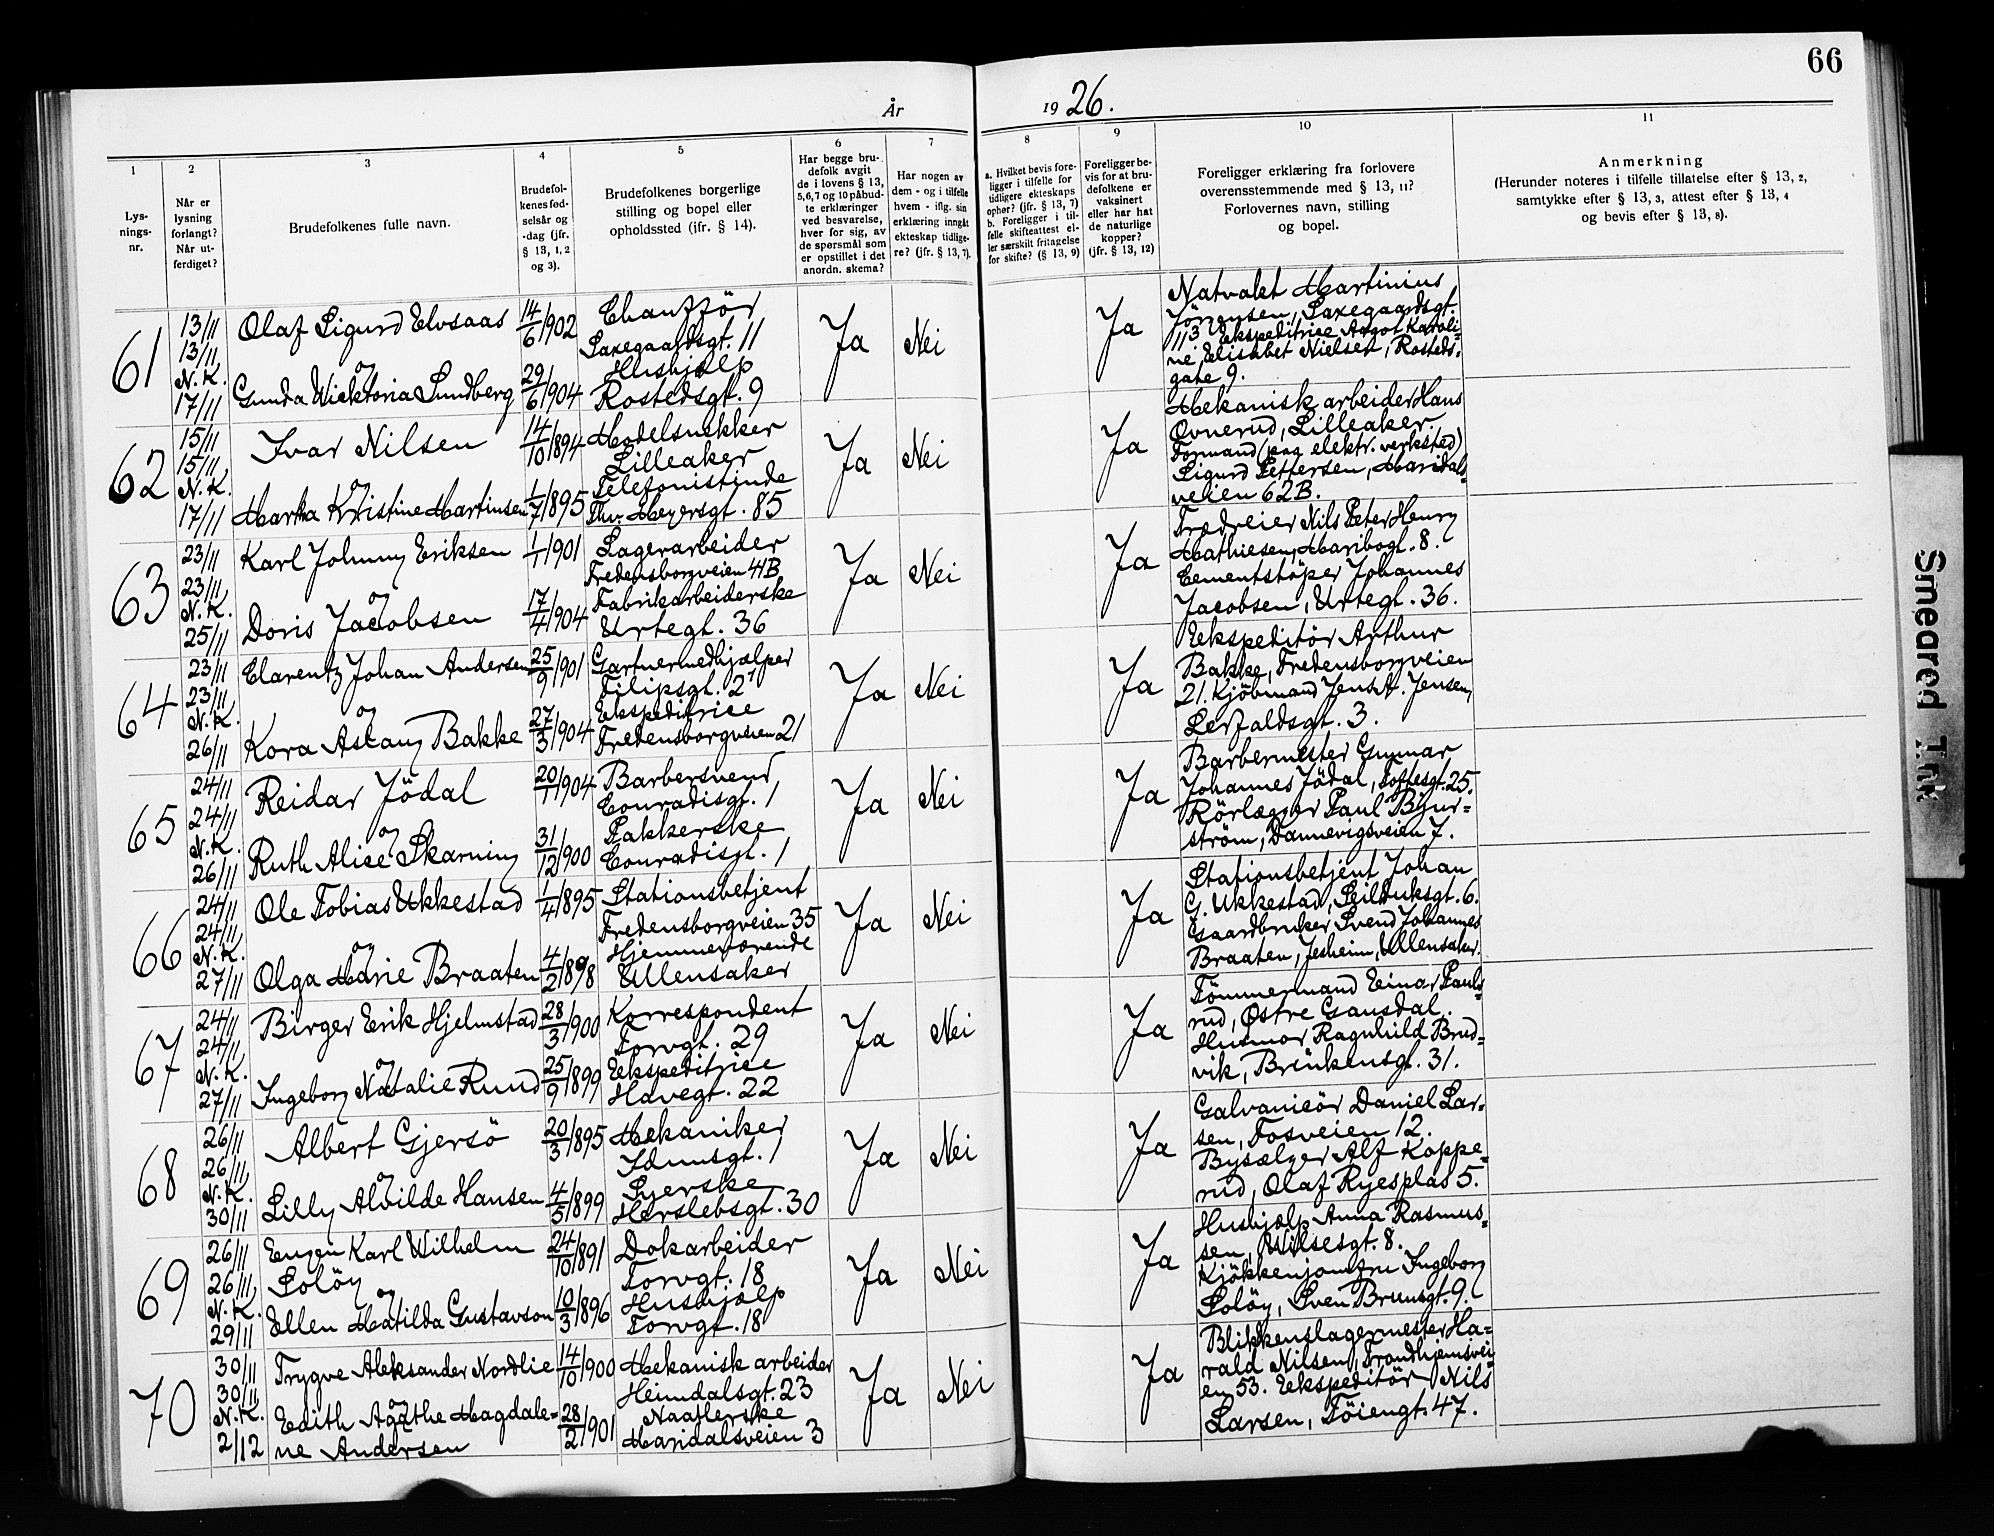 66
År 1926.
1
2
3
4
5
6
7
8
9
10
11
Lys-
nings-
nr.
Når er
lysning
forlangt?
Når ut-
ferdiget?
Brudefolkenes fulle navn.
Brudefol-
kenes fød-
selsår og
-dag (jfr.
§ 13, 1, 2
og 3).
Brudefolkenes borgerlige
stilling og bopel eller
opholdssted (jfr. § 14).
Har begge bru-
defolk avgit
de i lovens § 13,
5,6,7 og 10 påbud-
te erklæringer
ved besvarelse,
hver for sig, av
de spørsmål som
er opstillet i det
anordn. skema?
Har nogen av
dem - og i tilfelle
hvem - iflg. sin
erklæring inngåt
ekteskap tidlige-
re? (jfr. § 13, 7).
a. Hvilket bevis fore-
ligger i tilfelle for
tidligere ekteskaps
ophør? (jfr. § 13, 7)
b. Foreligger i til-
felle skifteattest el-
ler særskilt fritagelse
for skifte? (§ 13, 9)
Foreligger be-
vis for at bru-
defolkene er
vaksinert
eller har hat
de naturlige
kopper?
(jfr. § 13, 12)
Foreligger erklæring fra forlovere
overensstemmende med § 13, 11?
Forlovernes navn, stilling
og bopel.
Anmerkning
(Herunder noteres i tilfelle tillatelse efter § 13, 2,
samtykke efter § 13, 3, attest efter § 13, 4
og bevis efter § 13, 8).
61
13/11
13/11
N.K.
17/11
Olaf Sigurd Elvsaas
og
Gunda Wicktoria Sundberg
14/6 1902
29/6 1904
Chauffør
Saxegaardsgt. 11
Hushjælp
Rostedsgt. 9
Ja
Nei
Ja
Natvakt Martinius
Jörgensen, Saxegaardsgt.
113 Ekspeditrice Aagot Karoli-
ne Elisabet Nielsen, Rosteds-
gate 9.
62
15/11
15/11
N.K.
17/11
Ivar Nilsen
og
Martha Kristine Martinsen
14/10 1894
1/7 1895
Modelsnekker
Lilleaker
Telefonistinde
Thv. Meyersgt. 85
Ja
Nei
Ja
Mekanisk arbeider Hans
Ovnerud, Lilleaker.
Formand (paa elektr. verksted)
Sigurd Pettersen, Maridals-
veien 62B.
63
23/11
23/11
N.K.
25/11
Karl Johnny Eriksen
og
Doris Jacobsen
1/1 1901
17/4 1904
Lagerarbeider
Fredensborgveien 41B
Fabrikarbeiderske
Urtegt. 36
Ja
Nei
Ja
Nils Peter Henry
Mathiesen, Maribogt. 8.
Cementstöper Johannes
Jacobsen, Urtegt. 36.
64
23/11
23/11
N.K.
26/11
Clarentz Johan Andersen
og
Kora Aslaug Bakke
25/9 1901
27/3 1904
Gartnermedhjælper
Filipsgt. 2
Ekspeditrice
Fredensborgveien 21
Ja
Nei
Ja
Ekspeditör Arthur
Bakke, Fredensborgveien
21. Kjöbmand Jens A. Jensen,
Lerfaldsgt. 3.
65
24/11
24/11
N.K.
26/11
Reidar Jödal
og
Ruth Alise Skarning
20/1 1904
31/12 1900
Barbersvend
Conradisgt. 1
Pakkerske
Conradisgt. 1
Ja
Nei
Ja
Barbermester Gunnar
Johannes Jödal, Toftesgt. 25.
Rörlægger Paul Bjur-
ström, Dannevigsveien 7.
66
24/11
24/11
N.K.
27/11
Ole Tobias Ukkestad
og
Olga Marie Braaten
1/4 1895
4/2 1898
Stationsbetjent
Fredensborgveien 35
Hjemmeværende
Ullensaker
Ja
Nei
Ja
Stationsbetjent Johan
G. Ukkestad, Seilduksgt. 6.
Gaardbruker Svend Johannes
Braaten, Jesheim, Ullensaker.
67
24/11
24/11
N.K.
27/11
Birger Erik Hjelmstad
og
Ingeborg Natalie Rund
28/3 1900
25/9 1899
Korrespondent
Torvgt. 29
Ekspeditrice
Havegt. 22
Ja
Nei
Ja
Tömmermand Einar Pauls-
rud, Östre Gausdal.
Husmor Ragnhild Brud-
vik, Brinkensgt. 31.
68
26/11
26/11
N.K.
30/11
Albert Gjersö
og
Lilly Alvilde Hansen
20/3 1895
4/5 1899
Mekaniker
Idunsgt. 1
Syerske
Herslebsgt. 30
Ja
Nei
Ja
Galvanisör Daniel Lar-
sen, Fosveien 12.
Bysælger Alf Koppe-
rud, Olaf Ryesplas 5.
69
26/11
26/11
N.K.
29/11
Eugen Karl Wilhelm
Solöy
og
Ellen Matilda Gustavson
24/10 1891
10/3 1896
Dokarbeider
Torvgt. 18
Hushjælp
Torvgt. 18
Ja
Nei
Ja
Hushjælp Anna Rasmus-
sen, Wilsesgt. 8.
Kjökkenjomfru Ingeborg
Solöy, Sven Brunsgt. 9.
70
30/11
30/11
N.K.
2/12
Trygve Aleksander Nordlie
og
Edith Agathe Magdale-
ne Andersen
14/10 1900
28/2 1901
Mekanisk arbeider
Heimdalsgt. 23
Naatlerske
Maridalsveien 3
Ja
Nei
Ja
Blikkenslagermester Ha-
rald Nilsen, Trondhjemsvei-
en 53. Ekspeditör Nils
Larsen, Töiengt. 47.
Smeared Ink